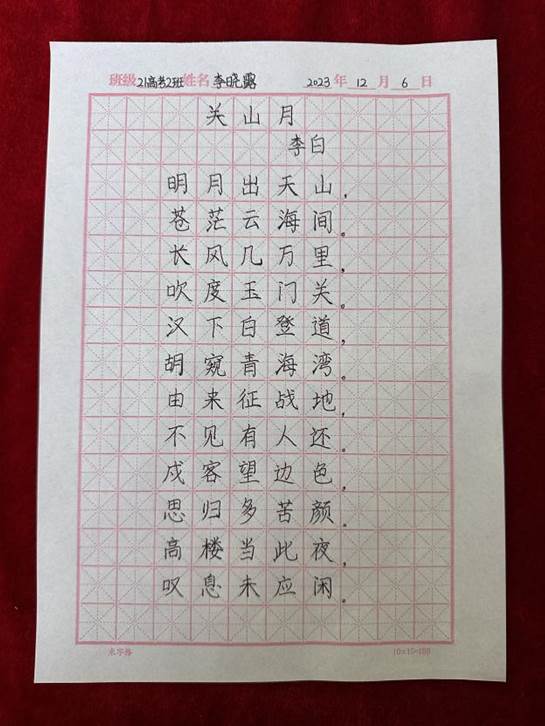 班级21高考2班姓名李晓露 2023年12月6日
关山月
李白
明月出天山，
苍茫云海间。
长风几万里，
吹度玉门关。
汉下白登道，
胡窥青海湾。
由来征战地，
不见有人还。
戍客望边色，
思归多苦颜。
高楼当此夜，
叹息未应闲。
米字格 10×15=150